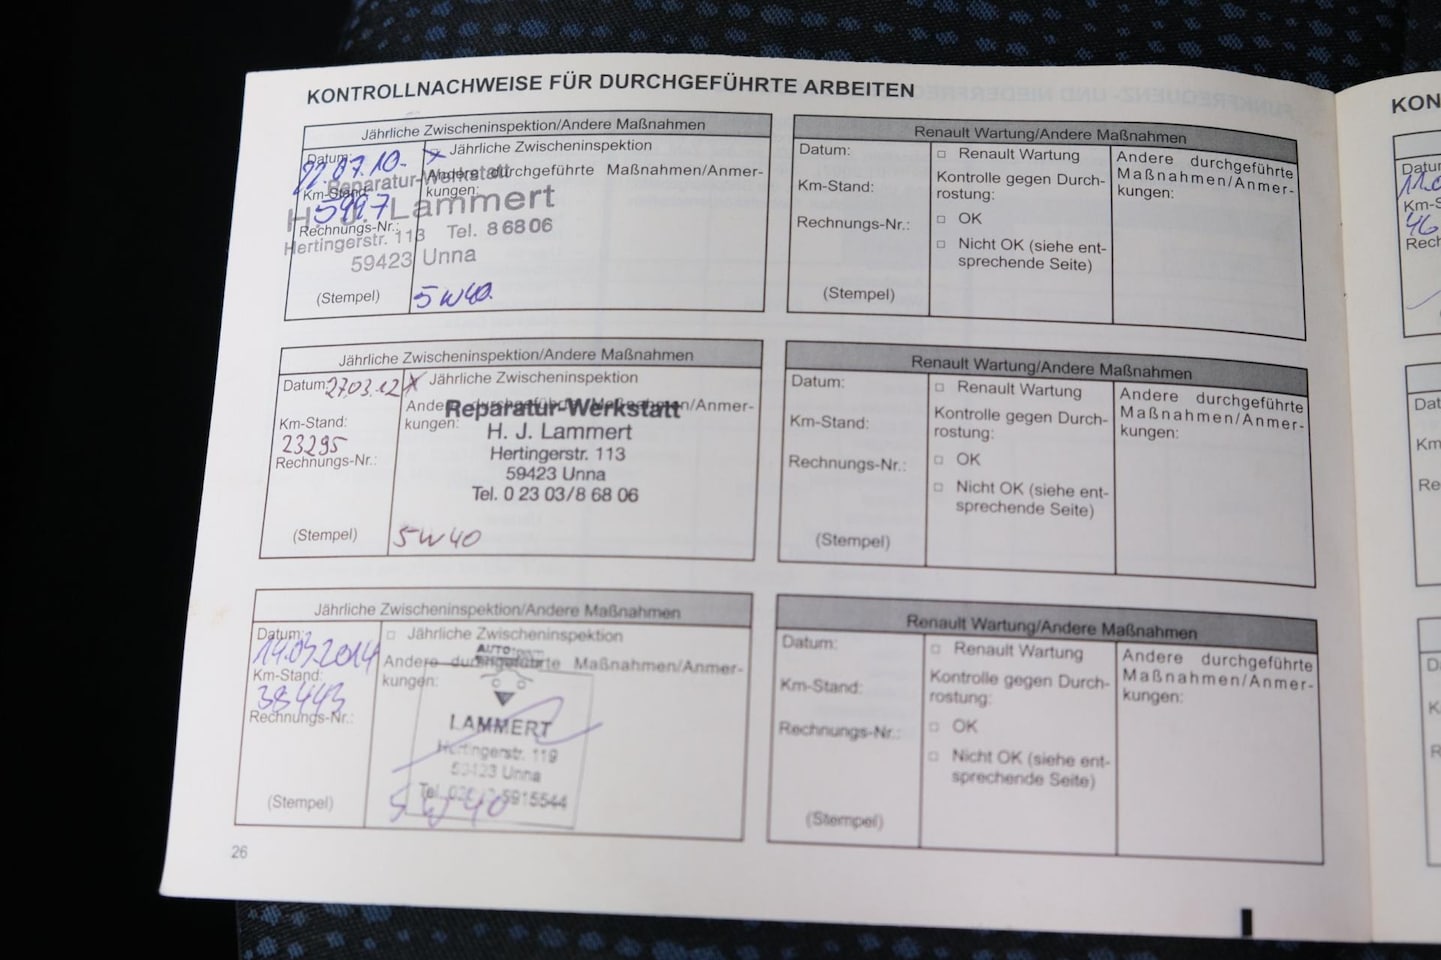 KONTROLLNACHWEISE FÜR DURCHGEFÜHRTE ARBEITEN
Jährliche Zwischeninspektion/Andere Maßnahmen
Datum:
22.07.10.
x Jährliche Zwischeninspektion
Andere durchgeführte Maßnahmen/Anmer-
kungen:
Km-Stand:
5997
Rechnungs-Nr.:
Reparatur-Werkstatt
H. J. Lammert
Hertingerstr. 113 Tel. 8 68 06
59423 Unna
(Stempel)
5W40.
Renault Wartung/Andere Maßnahmen
Datum:
Km-Stand:
Rechnungs-Nr.:
(Stempel)
□ Renault Wartung
Kontrolle gegen Durch-
rostung:
□ OK
□ Nicht OK (siehe ent-
sprechende Seite)
Andere durchgeführte
Maßnahmen/Anmer-
kungen:
Jährliche Zwischeninspektion/Andere Maßnahmen
Datum: 27.03.12
x Jährliche Zwischeninspektion
Andere durchgeführte Maßnahmen/Anmer-
kungen:
Km-Stand:
23295
Rechnungs-Nr.:
Reparatur-Werkstatt
H. J. Lammert
Hertingerstr. 113
59423 Unna
Tel. 0 23 03/8 68 06
(Stempel)
5W40
Renault Wartung/Andere Maßnahmen
Datum:
Km-Stand:
Rechnungs-Nr.:
(Stempel)
□ Renault Wartung
Kontrolle gegen Durch-
rostung:
□ OK
□ Nicht OK (siehe ent-
sprechende Seite)
Andere durchgeführte
Maßnahmen/Anmer-
kungen:
Jährliche Zwischeninspektion/Andere Maßnahmen
Datum:
14.03.2014
□ Jährliche Zwischeninspektion
Andere durchgeführte Maßnahmen/Anmer-
kungen:
Km-Stand:
38443
Rechnungs-Nr.:
AUTO
LAMMERT
Hertingerstr. 119
59423 Unna
Tel. 5915544
(Stempel)
5W40
Renault Wartung/Andere Maßnahmen
Datum:
Km-Stand:
Rechnungs-Nr.:
(Stempel)
□ Renault Wartung
Kontrolle gegen Durch-
rostung:
□ OK
□ Nicht OK (siehe ent-
sprechende Seite)
Andere durchgeführte
Maßnahmen/Anmer-
kungen:
26